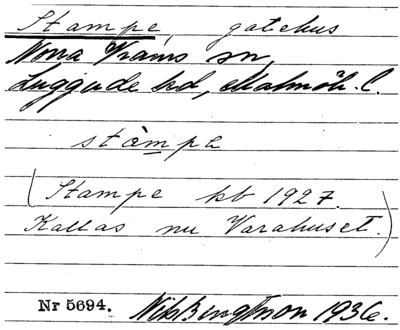 Stampe, gatehus
Norra Vrams sn,
Luggude hd, Malmöh. l.
stàmpa
(Stampe kb 1927.
Kallas nu Varahuset.)
Nr 5694. Nils Bengtsson 1936.